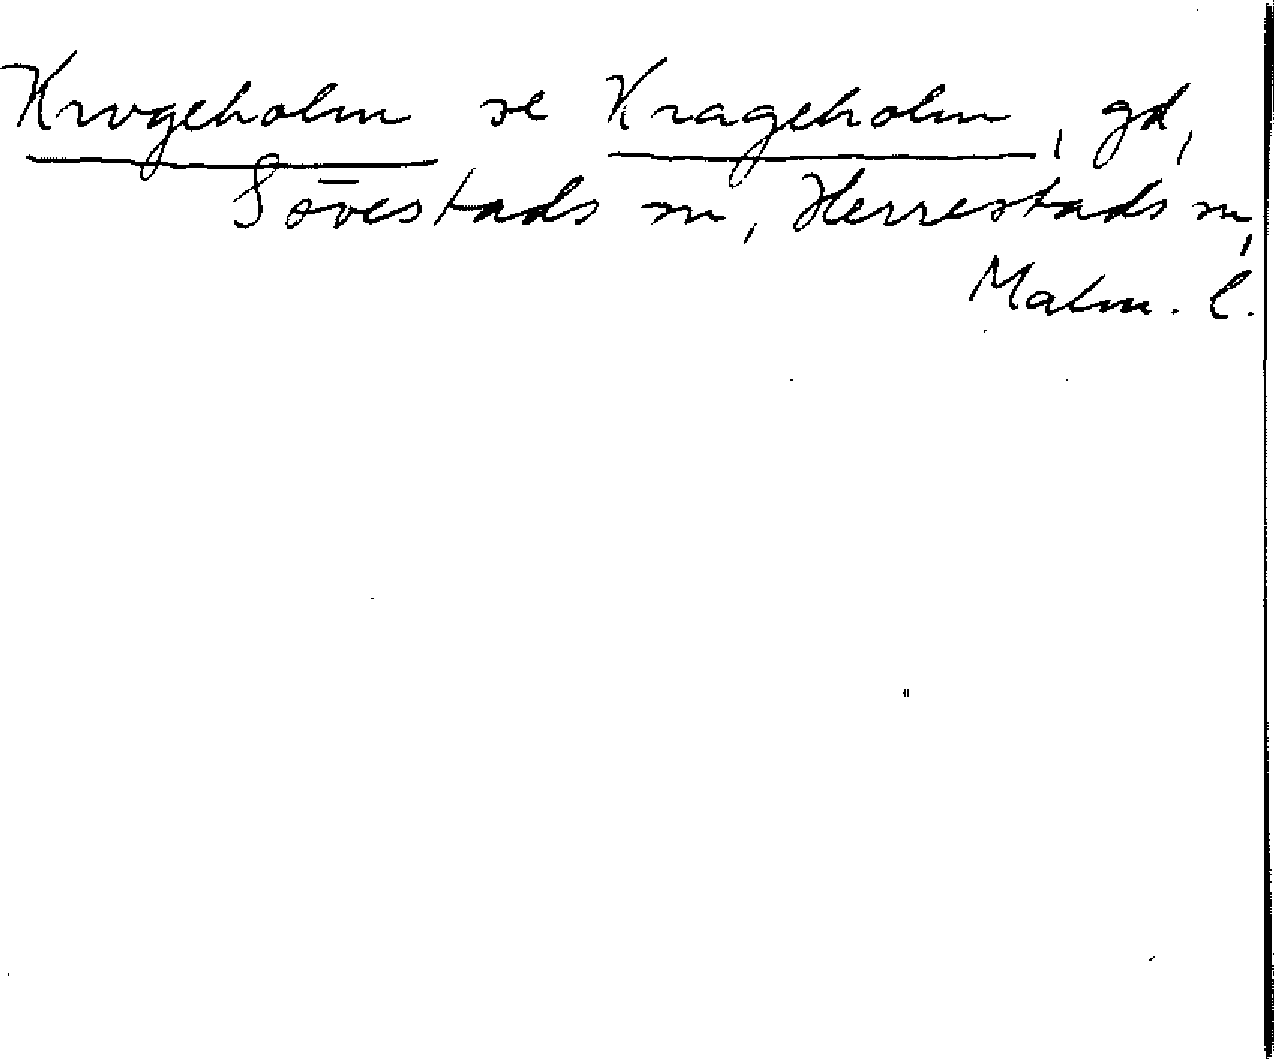 Krvgeholm se Krageholm, gd,
Sövestads sn, Herrestads sn,
Malm. l.